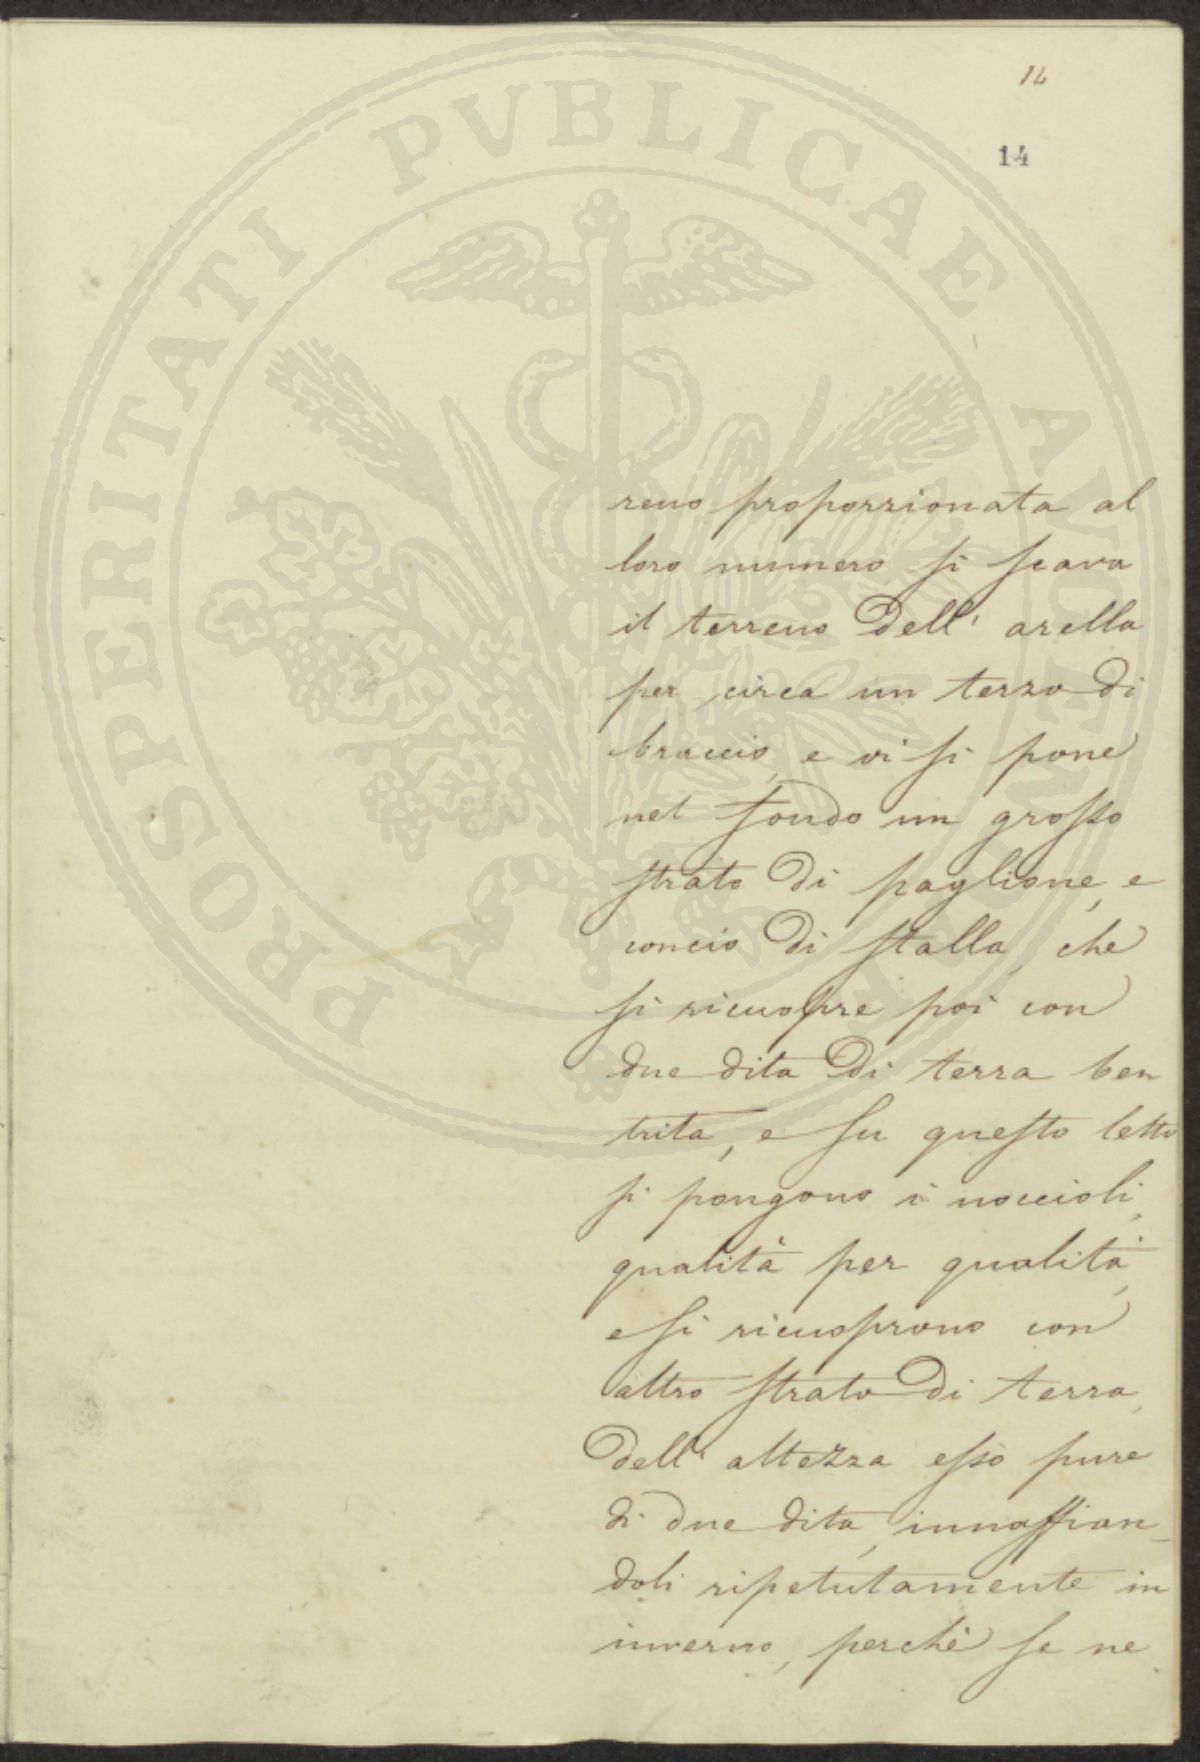 14
14
PROSPERITATI PUBLICAE AUGENDAE
reno proporzionata al
loro numero si scava
il terreno dell' arella
per circa un terzo di
braccio, e vi si pone
nel fondo un grosso
strato di paglione, e
concio di stalla, che
si ricuopre poi con
due dita di terra ben
trita, e su questo letto
si pongono i noccioli,
qualità per qualità,
e si ricuoprono con
altro strato di terra,
dell' altezza esso pure
di due dita, innaffian-
doli ripetutamente in
inverno, perchè se ne